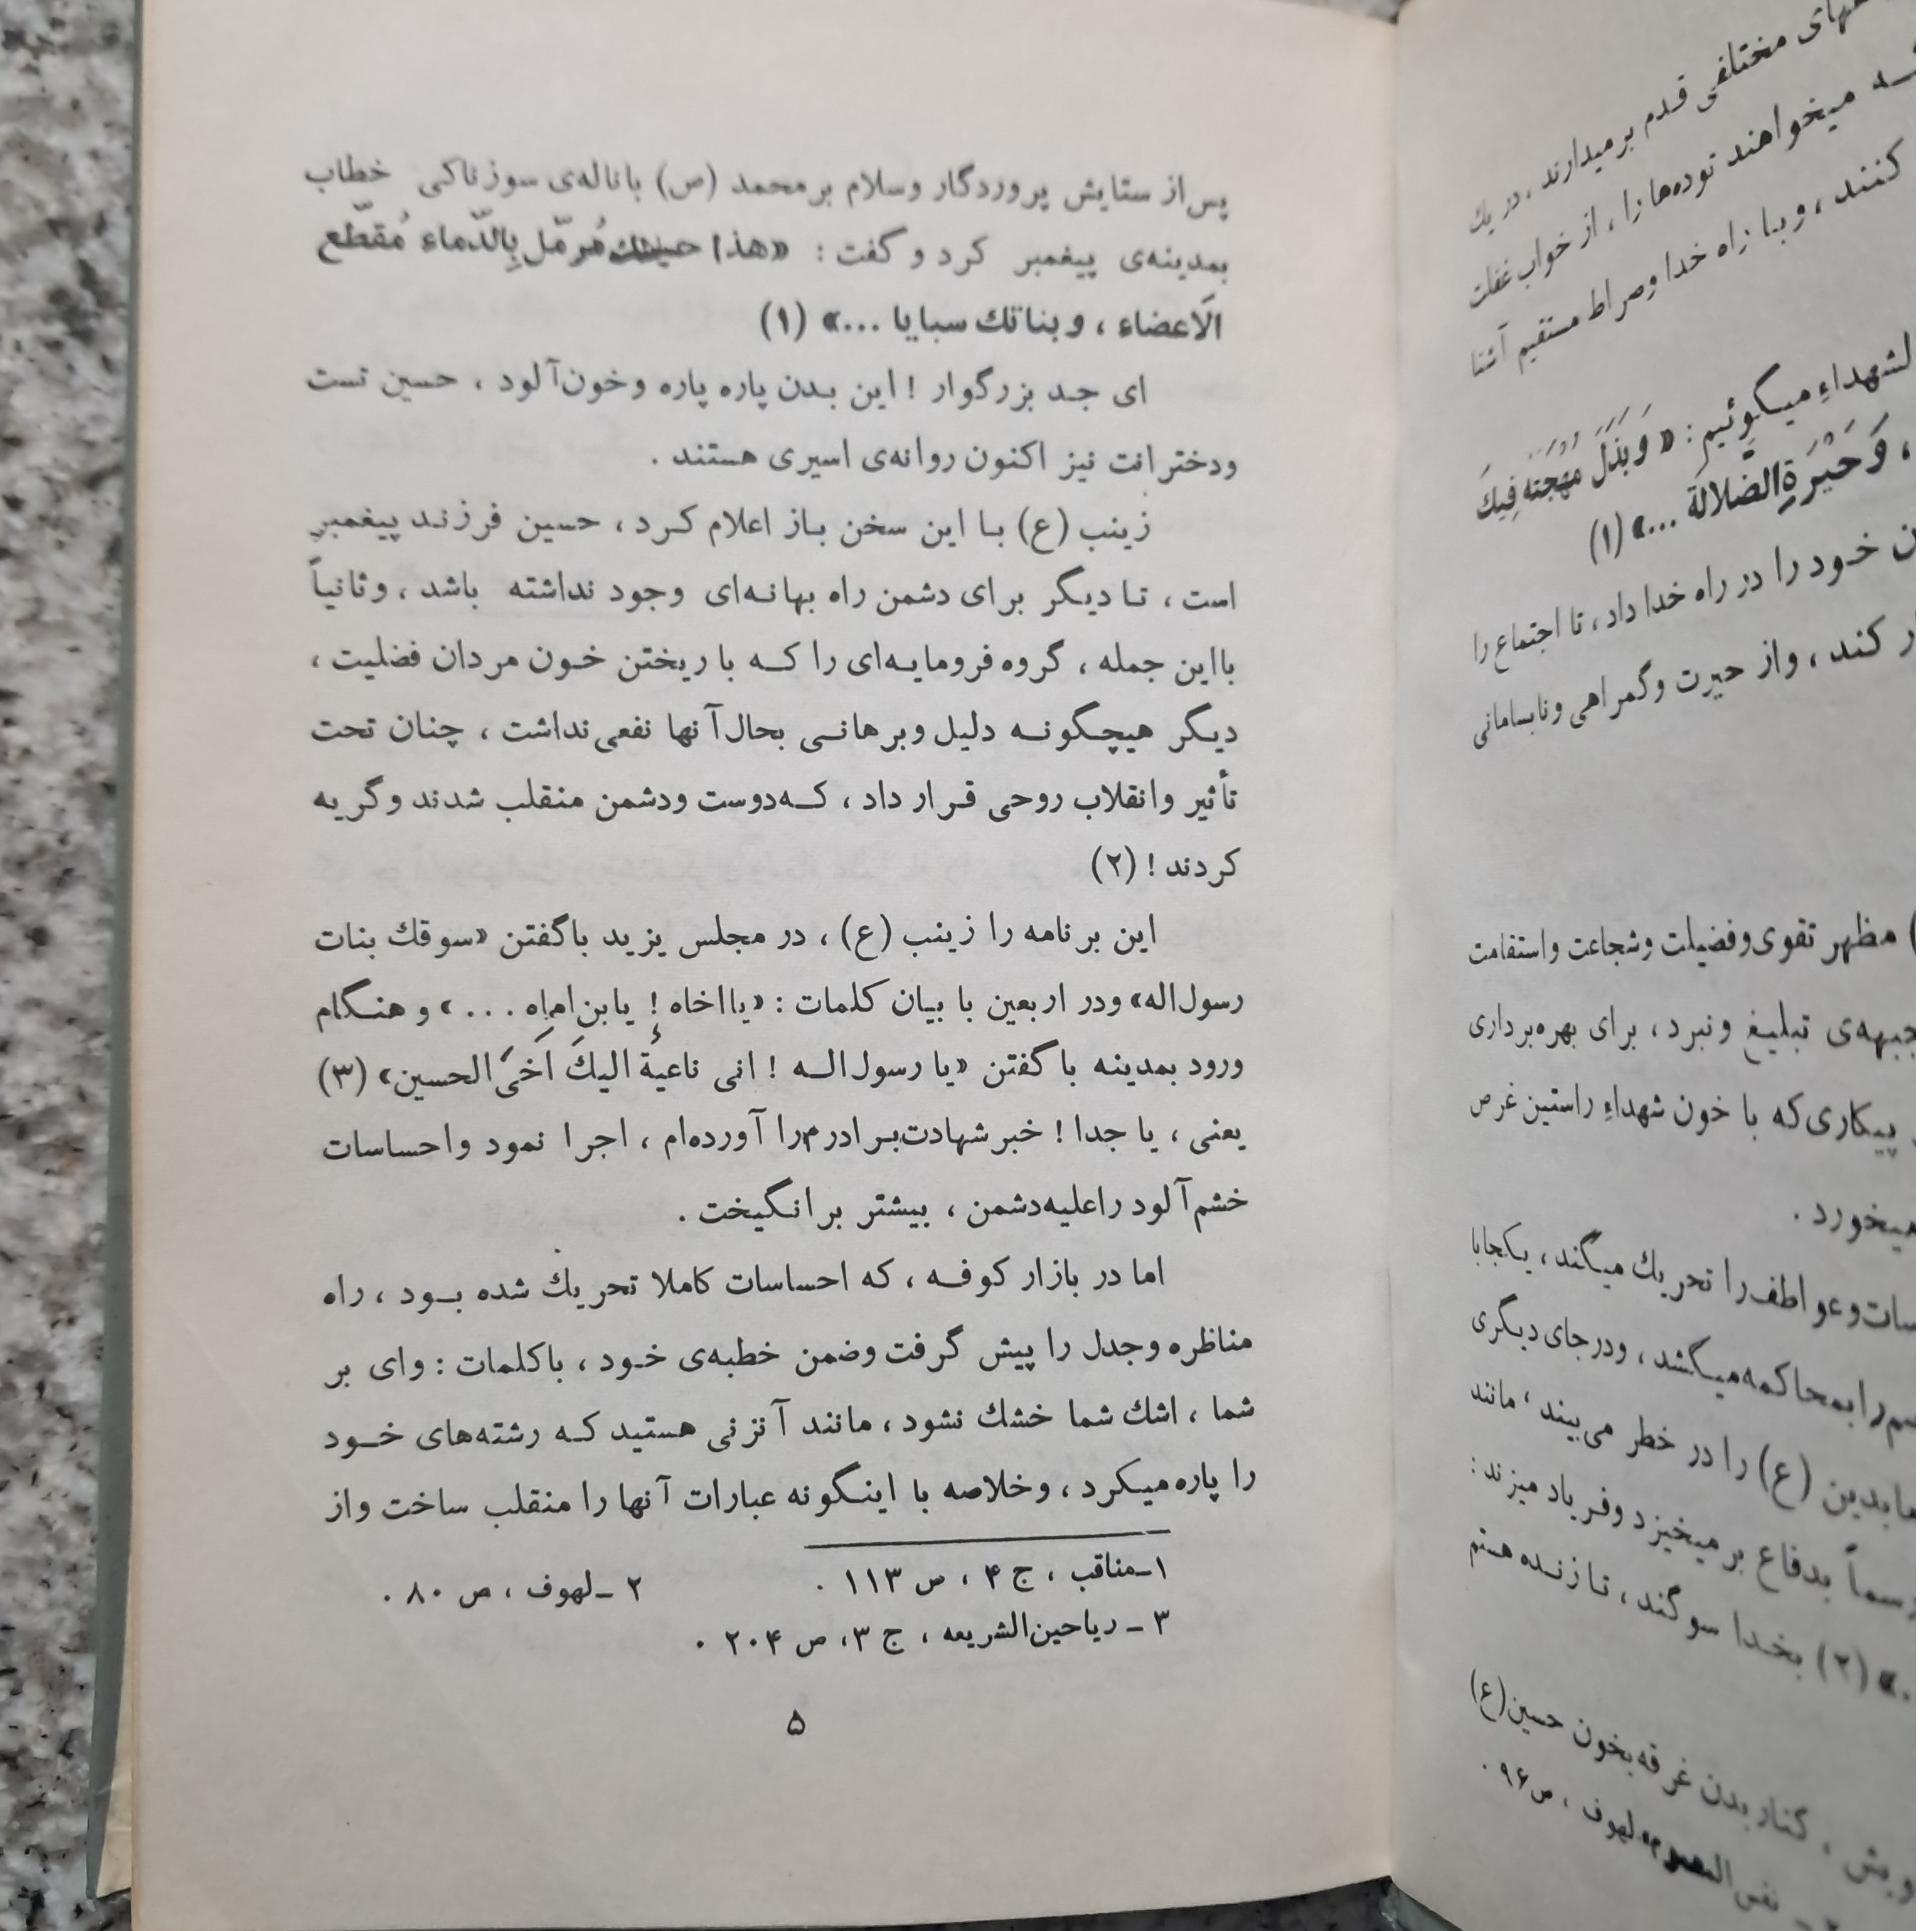 پس‌از ستایش پروردگار وسلام برمحمد (ص) باناله‌ی سوزناکی خطاب
بمدینه‌ی پیغمبر کرد و گفت : «هذا مُرمّل بِالدّماء مُقطّع
الَاعضاء ، وبناتك سبایا ...» (۱)
ای جد بزرگوار ! این بدن پاره پاره وخون‌آلود ، حسین تست
ودخترانت نیز اکنون روانه‌ی اسیری هستند .
زینب (ع) با این سخن باز اعلام کرد ، حسین فرزند پیغمبر
است ، تا دیگر برای دشمن راه بهانه‌ای وجود نداشته باشد ، وثانیاً
بااین جمله ، گروه فرومایه‌ای را که با ریختن خون مردان فضلیت ،
دیگر هیچگونه دلیل وبرهانی بحال‌آنها نفعی‌نداشت ، چنان تحت
تأثیر وانقلاب روحی قرار داد ، که‌دوست ودشمن منقلب شدند وگریه
کردند ! (۲)
این برنامه را زینب (ع) ، در مجلس یزید باگفتن «سوقك بنات
رسول‌اله» ودر اربعین با بیان کلمات : «یااخاه ! یابن‌اماه ...» و هنگام
ورود بمدینه باگفتن «یا رسول‌اله ! انی ناعیة الیكَ اَخیَ‌الحسین» (۳)
یعنی ، یا جدا ! خبرشهادت‌برادرم‌را آورده‌ام ، اجرا نمود واحساسات
خشم‌آلود راعلیه‌دشمن ، بیشتر برانگیخت .
اما در بازار کوفه ، که احساسات کاملا تحریك شده بود ، راه
مناظره وجدل را پیش گرفت وضمن خطبه‌ی خود ، باکلمات : وای بر
شما ، اشك شما خشك نشود ، مانند آنزنی هستید که رشته‌های خود
را پاره‌میکرد ، وخلاصه با اینگونه عبارات آنها را منقلب ساخت واز
۱ـ‌مناقب ، ج ۴ ، ص ۱۱۳ . ۲ ـ لهوف ، ص ۸۰ .
۳ ـ ریاحین‌الشریعه ، ج ۳، ص ۲۰۴ .
۵
مختلفی قدم برمیدارند ، در یك
میخواهند توده‌ها را ، از خواب غفلت
کنند ، و با راه خدا وصراط مستقیم آشنا
میگوئیم : « وَبَذَلَ مُهْجَتَه فِیكَ
، وَحَیْرَةِ‌الضَّلالَة ...» (۱)
خود را در راه خدا داد ، تا اجتماع را
کند ، واز حیرت وگمراهی ونابسامانی
مظهر تقوی‌وفضیلت وشجاعت واستقامت
تبلیغ ونبرد ، برای بهره‌برداری
پیکاری‌که با خون شهداءِ راستین غرص
میخورد .
وعواطف‌را تحریك میگند ، یکجابا
رابمحاکمه‌میکشد ، ودرجای دیگری
(ع) را در خطر می‌بیند ، مانند
بدفاع برمیخیزد وفریاد میزند :
» (۲) بخدا سوگند ، تا زنده هستم
، کنار بدن غرقه‌بخون حسین(ع)
لهوف ، ص۹۶ .